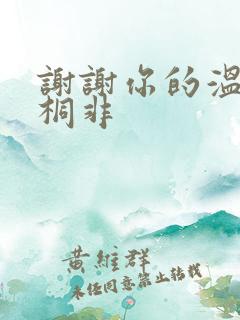 謝謝你的溫
桐非
黃維群
未任同意禁止轉載